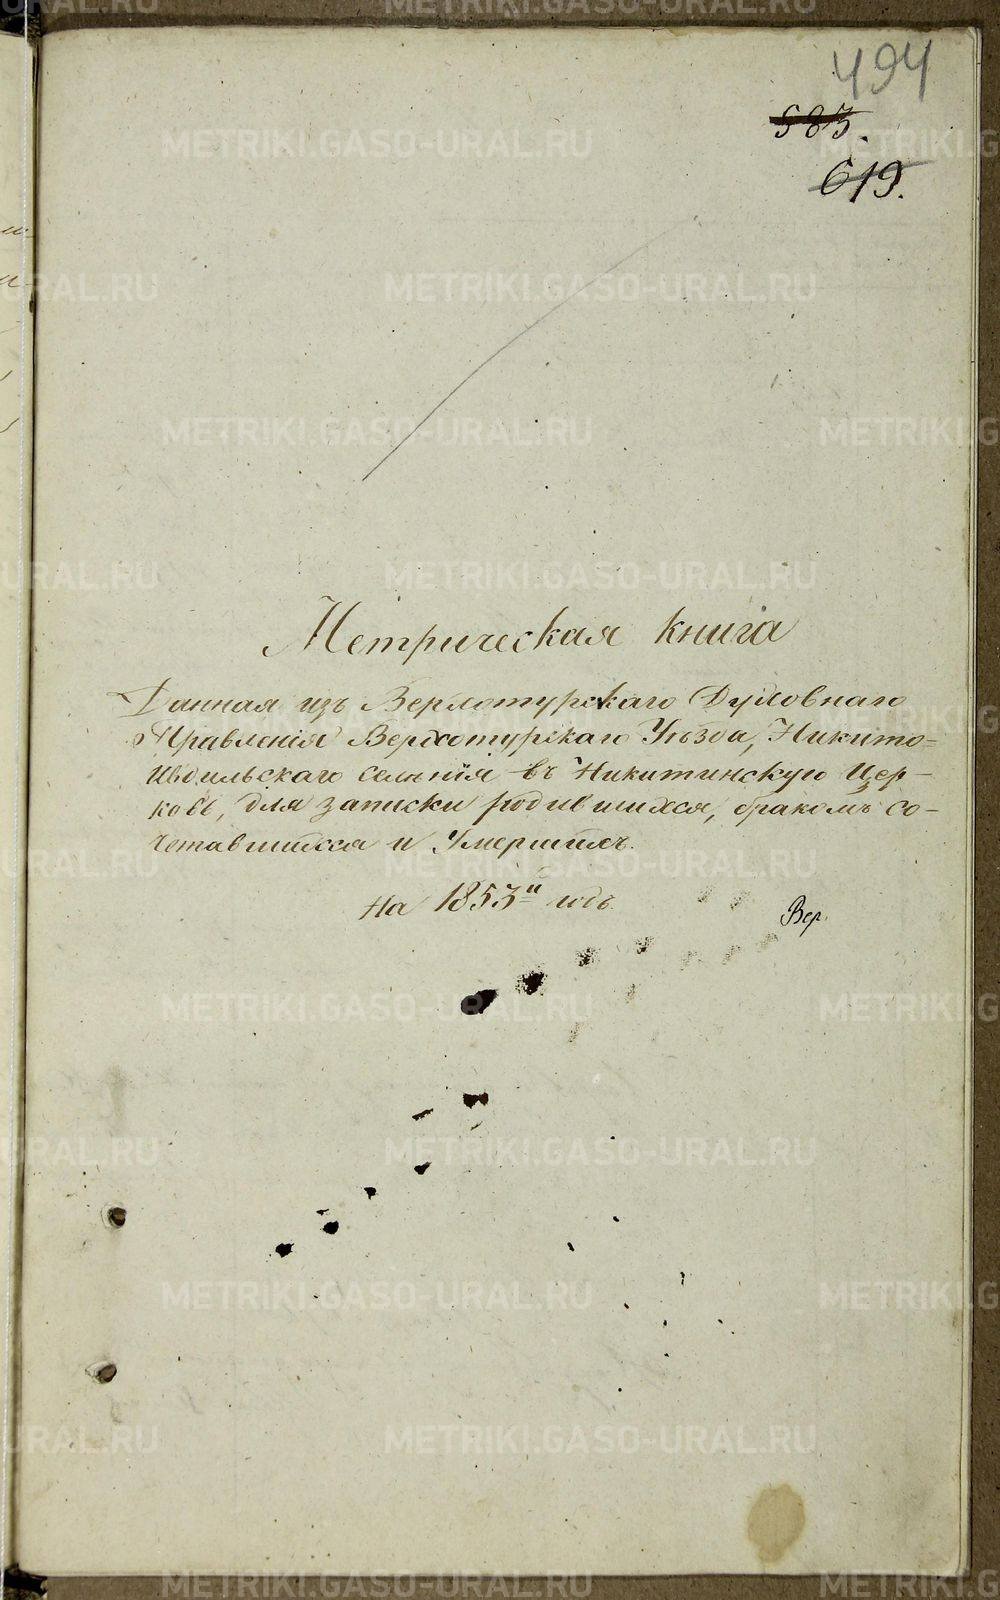 494
583.
619.
Метрическая книга
Данная изъ Верхотурскаго Духовнаго
Правленія Верхотурскаго Уѣзда, Никито=
Ивдильскаго селенія въ Никитинскую Цер-
ковь, для записки родившихся, бракомъ со-
четавшихся и Умершихъ.
На 1853й годъ.
Вер